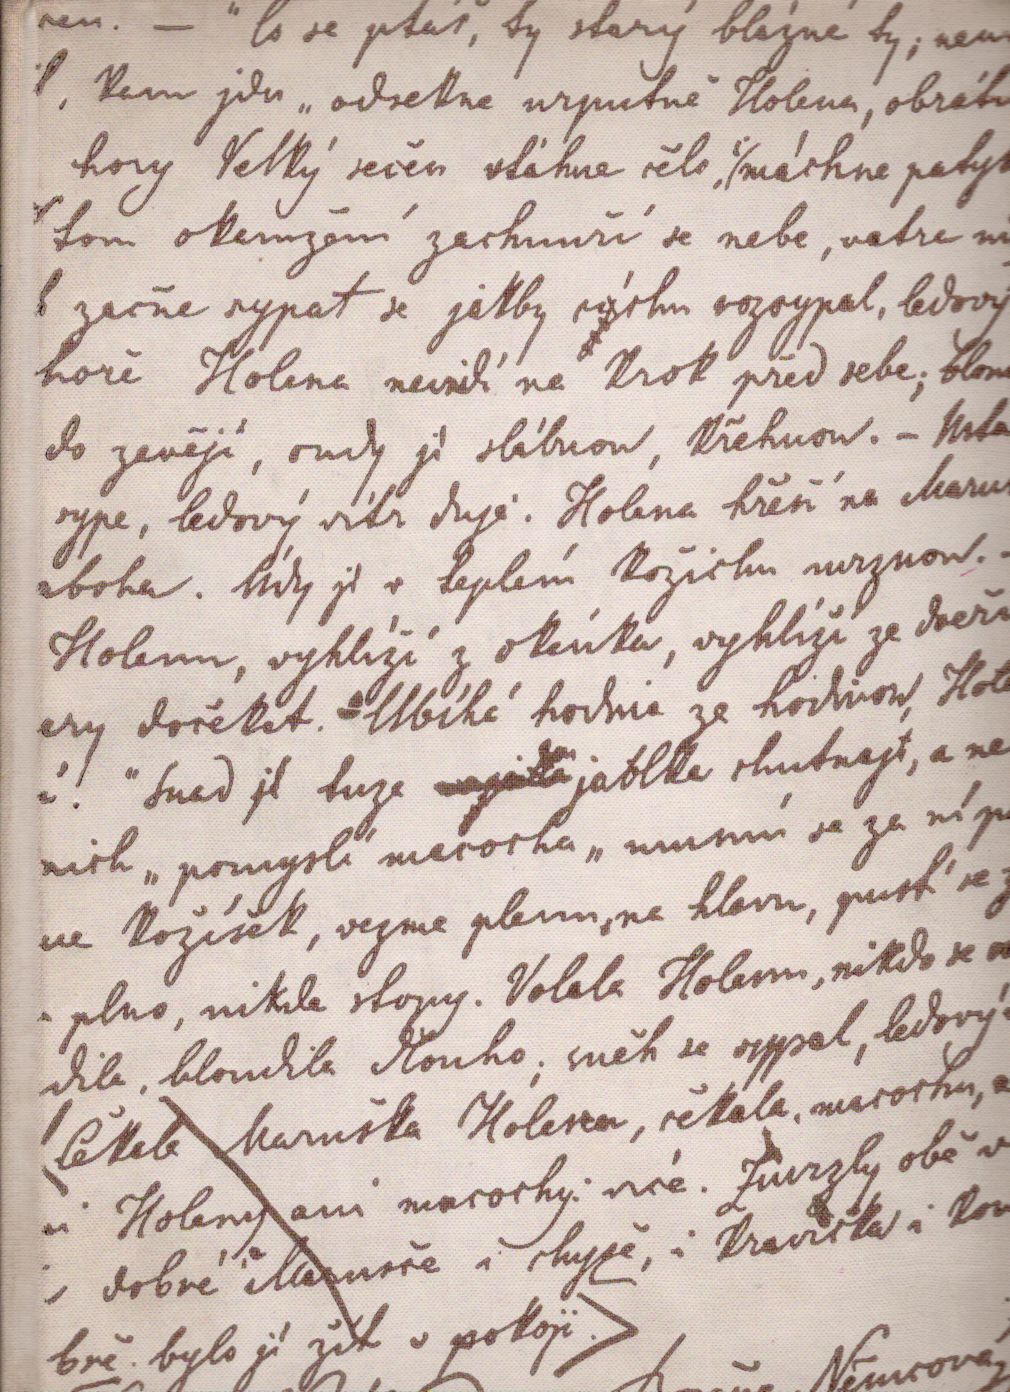 — "Co se ptáš, ty starý blázne ty; nev
, kam jdu „ odsekne urputně Holena, obrátí
hory Velký sečen stáhne čelo, máchne patyk
tom okamžení zachmuří se nebe, vatra
začne sypat se jakby rozsypal, ledový
hoře Holena nevidí na krok před sebe;
do závějí, oudy jí slábnou, křehnou. –
sype, ledový vítr duje. Holena hřeší na Maru
aboha. Údy jí v teplém kožichu mrznou. –
Holenu, vyhlíží z okénka, vyhlíží ze dveří
ery dočekat. Ubíhá hodina za hodinou, Hole
"Snad jí tuze jablka chutnají, a ne
nich „ pomyslí macocha „ musím se za ní po
ne kožíšek, vezme plenu na hlavu, pustí se z
plno, nikde stopy. Volala Holenu, nikdo se
dila, bloudila dlouho; sněh se sypal, ledový
Čekala Maruška Holenu, čekala macochu, a
ni Holeny ani macochy více. Zmrzly obě v
dobré Marušce i chýše, i kravička i kou
bře bylo jí žít v pokoji.
Němcova